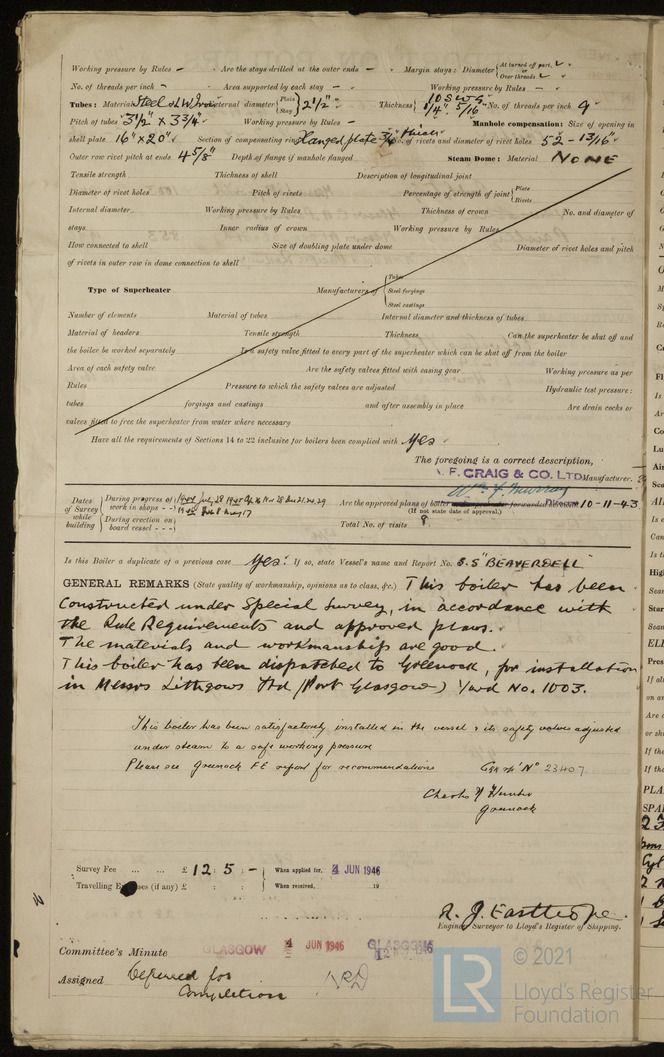 Working pressure by Rules - Are the stays drilled at the outer ends - Margin stays: Diameter { At turned off part, or Over threads
No. of threads per inch - Area supported by each stay - Working pressure by Rules -
Tubes: Material Steel or LW Iron External diameter { Plain Stay } 2 1/2" Thickness { 10 SWG 1/4" 5/16" No. of threads per inch 9
Pitch of tubes 3 1/2" x 3 3/4" Working pressure by Rules - Manhole compensation: Size of opening in
shell plate 16" x 20" Section of compensating ring Flanged plate No. of rivets and diameter of rivet holes 52 - 13/16"
Outer row rivet pitch at ends 4 5/8" Depth of flange if manhole flanged Steam Dome: Material NONE
Tensile strength Thickness of shell Description of longitudinal joint
Diameter of rivet holes Pitch of rivets Percentage of strength of joint { Plate Rivets
Internal diameter Working pressure by Rules Thickness of crown No. and diameter of
stays Inner radius of crown Working pressure by Rules
How connected to shell Size of doubling plate under dome Diameter of rivet holes and pitch
of rivets in outer row in dome connection to shell
Type of Superheater Manufacturers of { Tubes Steel forgings Steel castings
Number of elements Material of tubes Internal diameter and thickness of tubes
Material of headers Tensile strength Thickness Can the superheater be shut off and
the boiler be worked separately Is a safety valve fitted to every part of the superheater which can be shut off from the boiler
Area of each safety valve Are the safety valves fitted with easing gear Working pressure as per
Rules Pressure to which the safety valves are adjusted Hydraulic test pressure:
tubes forgings and castings and after assembly in place Are drain cocks or
valves fitted to free the superheater from water where necessary
Have all the requirements of Sections 14 to 22 inclusive for boilers been complied with Yes
The foregoing is a correct description,
A. F. CRAIG & CO. LTD. Manufacturer.
Wm. J. Murray
Dates of Survey while building { During progress of work in shops - - } { During erection on board vessel - - - }
Are the approved plans of boiler 10-11-43
(If not state date of approval.)
Total No. of visits 8.
Is this Boiler a duplicate of a previous case Yes. If so, state Vessel's name and Report No. S.S "BEAVERDELL"
GENERAL REMARKS (State quality of workmanship, opinions as to class, &c.) This boiler has been
Constructed under Special Survey, in accordance with
the Rule Requirements and approved plans.
The materials and workmanship are good.
This boiler has been dispatched to Greenock, for installation
in Messrs Lithgows Ltd (Port Glasgow) Yard No. 1003.
This boiler has been satisfactorily installed in the vessel & its safety valves adjusted
under steam to a safe working pressure
Please see Greenock F.E. report for recommendations Gk Rpt No 23407
Charles Hunter
Greenock
Survey Fee ... ... £ 12 : 5 : - When applied for, 4 JUN 1946
Travelling Expenses (if any) £ : : When received, 19
R. J. Eastthorpe.
Engineer Surveyor to Lloyd's Register of Shipping.
Committee's Minute GLASGOW 4 JUN 1946 GLASGOW
Assigned Deferred for
Completion
© 2021
LR Lloyd's Register
Foundation